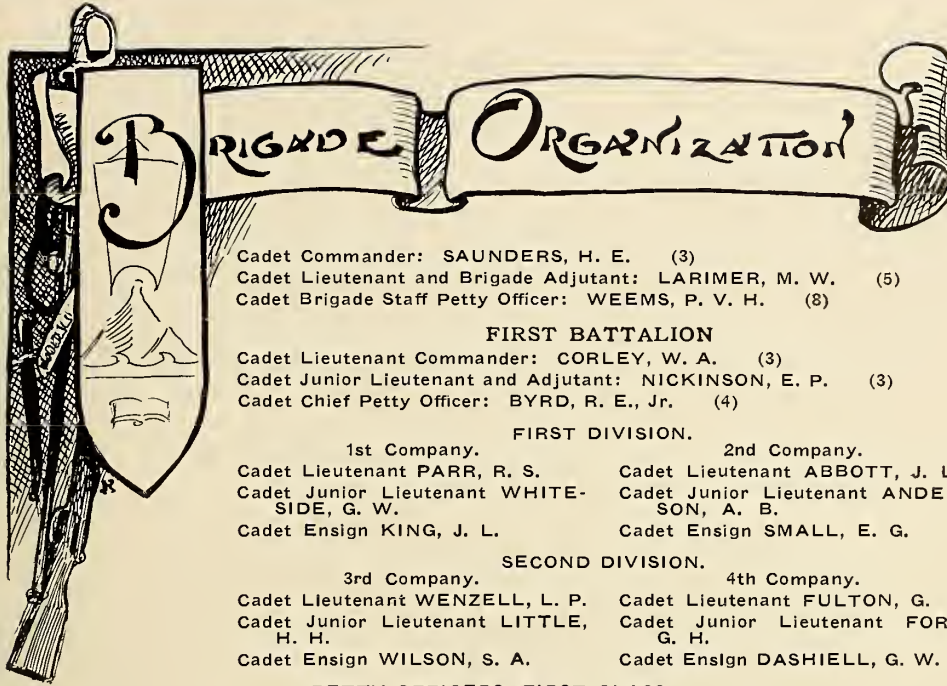 BRIGADE ORGANIZATION
Cadet Commander: SAUNDERS, H. E. (3)
Cadet Lieutenant and Brigade Adjutant: LARIMER, M. W. (5)
Cadet Brigade Staff Petty Officer: WEEMS, P. V. H. (8)
FIRST BATTALION
Cadet Lieutenant Commander: CORLEY, W. A. (3)
Cadet Junior Lieutenant and Adjutant: NICKINSON, E. P. (3)
Cadet Chief Petty Officer: BYRD, R. E., Jr. (4)
FIRST DIVISION.
1st Company.
Cadet Lieutenant PARR, R. S.
Cadet Junior Lieutenant WHITE-
SIDE, G. W.
Cadet Ensign KING, J. L.
2nd Company.
Cadet Lieutenant ABBOTT, J. L
Cadet Junior Lieutenant ANDE
SON, A. B.
Cadet Ensign SMALL, E. G.
SECOND DIVISION.
3rd Company.
Cadet Lieutenant WENZELL, L. P.
Cadet Junior Lieutenant LITTLE,
H. H.
Cadet Ensign WILSON, S. A.
4th Company.
Cadet Lieutenant FULTON, G.
Cadet Junior Lieutenant FOR
G. H.
Cadet Ensign DASHIELL, G. W.